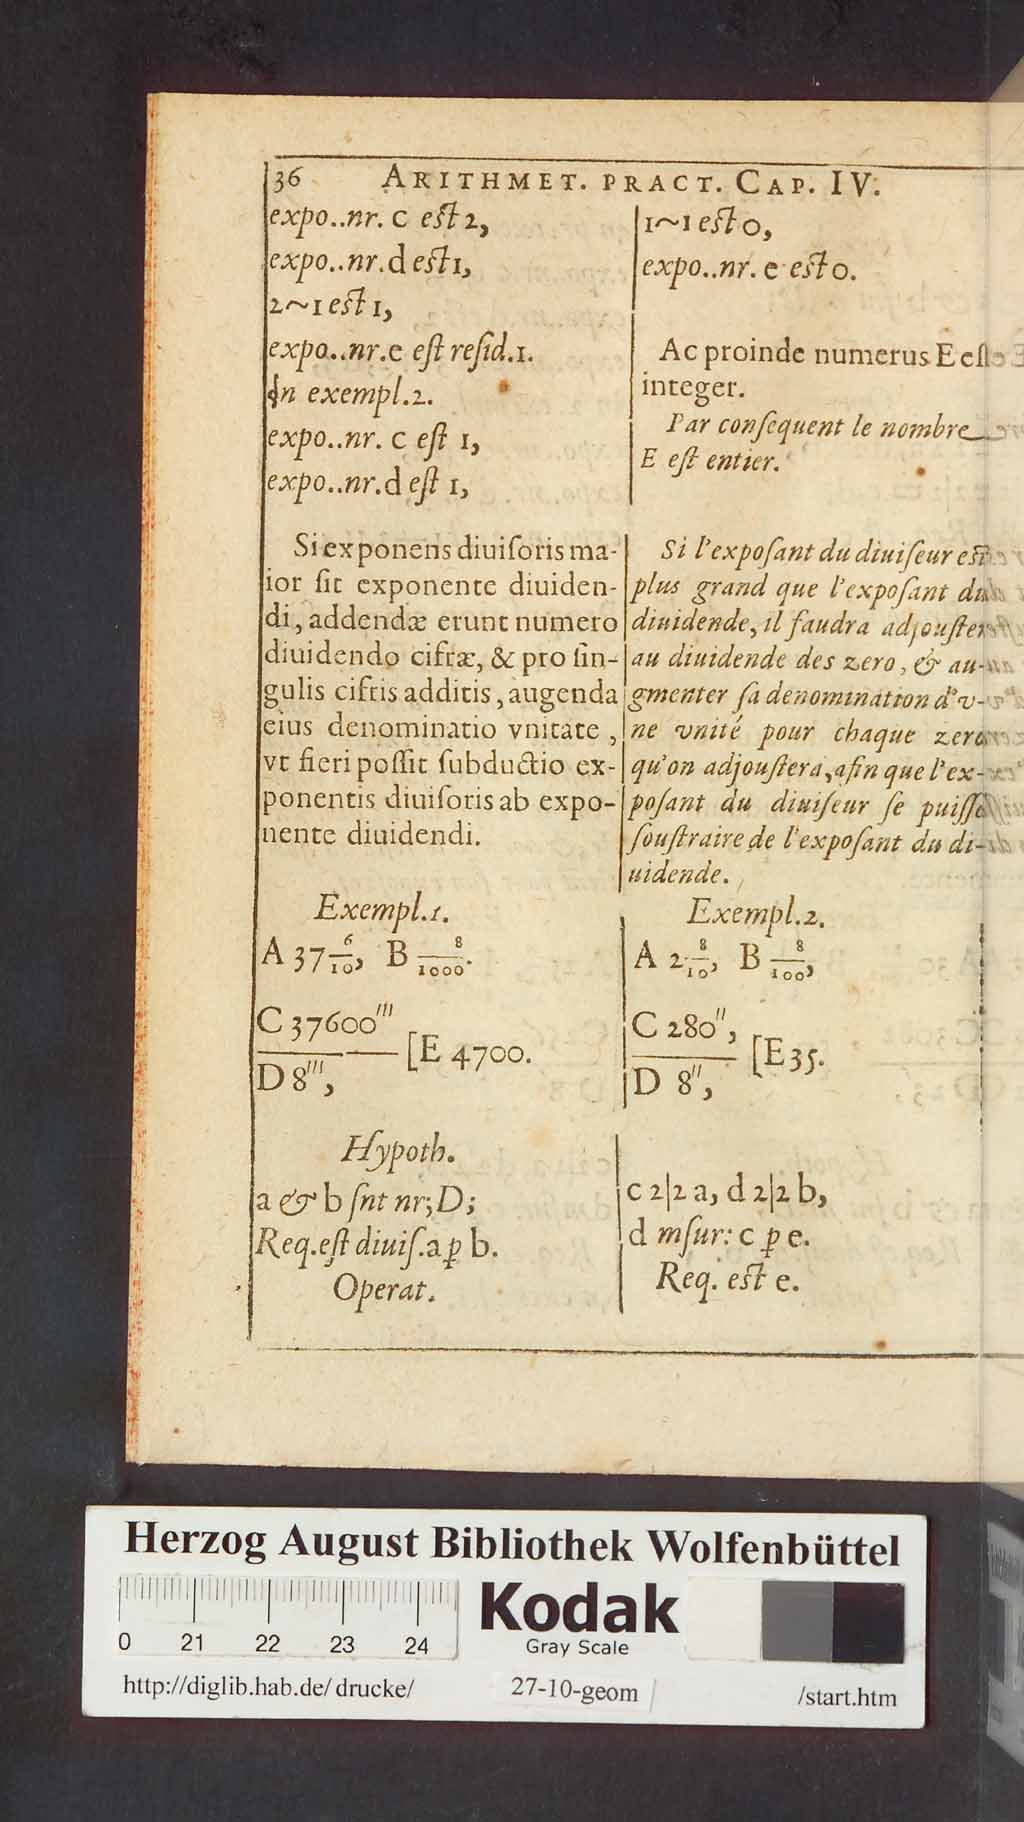 36 ARITHMET. PRACT. CAP. IV.
expo..nr. c est 2,
expo..nr. d est 1,
2~1 est 1,
expo..nr. e est resid. 1.
In exempl. 2.
expo..nr. c est 1,
expo..nr. d est 1,
1~1 est 0,
expo..nr. e est 0.
Ac proinde numerus E est
integer.
Par consequent le nombre
E est entier.
Si exponens diuisoris ma-
ior sit exponente diuiden-
di, addendæ erunt numero
diuidendo cifræ, & pro sin-
gulis cifris additis, augenda
eius denominatio vnitate,
vt fieri possit subductio ex-
ponentis diuisoris ab expo-
nente diuidendi.
Si l'exposant du diuiseur est
plus grand que l'exposant du
diuidende, il faudra adjouster
au diuidende des zero, & au-
gmenter sa denomination d'v-
ne vnité pour chaque zero
qu'on adjoustera, afin que l'ex-
posant du diuiseur se puisse
soustraire de l'exposant du di-
uidende.
Exempl. 1.
A 37 6/10, B 8/1000.
C 37600'''
[E 4700.
D 8''',
Exempl. 2.
A 2 8/10, B 8/100,
C 280'',
[E 35.
D 8'',
Hypoth.
a & b snt nr; D;
Req. est diuis. a ꝑ b.
Operat.
c 2|2 a, d 2|2 b,
d msur: c ꝑ e.
Req. est e.
Herzog August Bibliothek Wolfenbüttel
0 21 22 23 24
Kodak
Gray Scale
http://diglib.hab.de/drucke/ 27-10-geom /start.htm